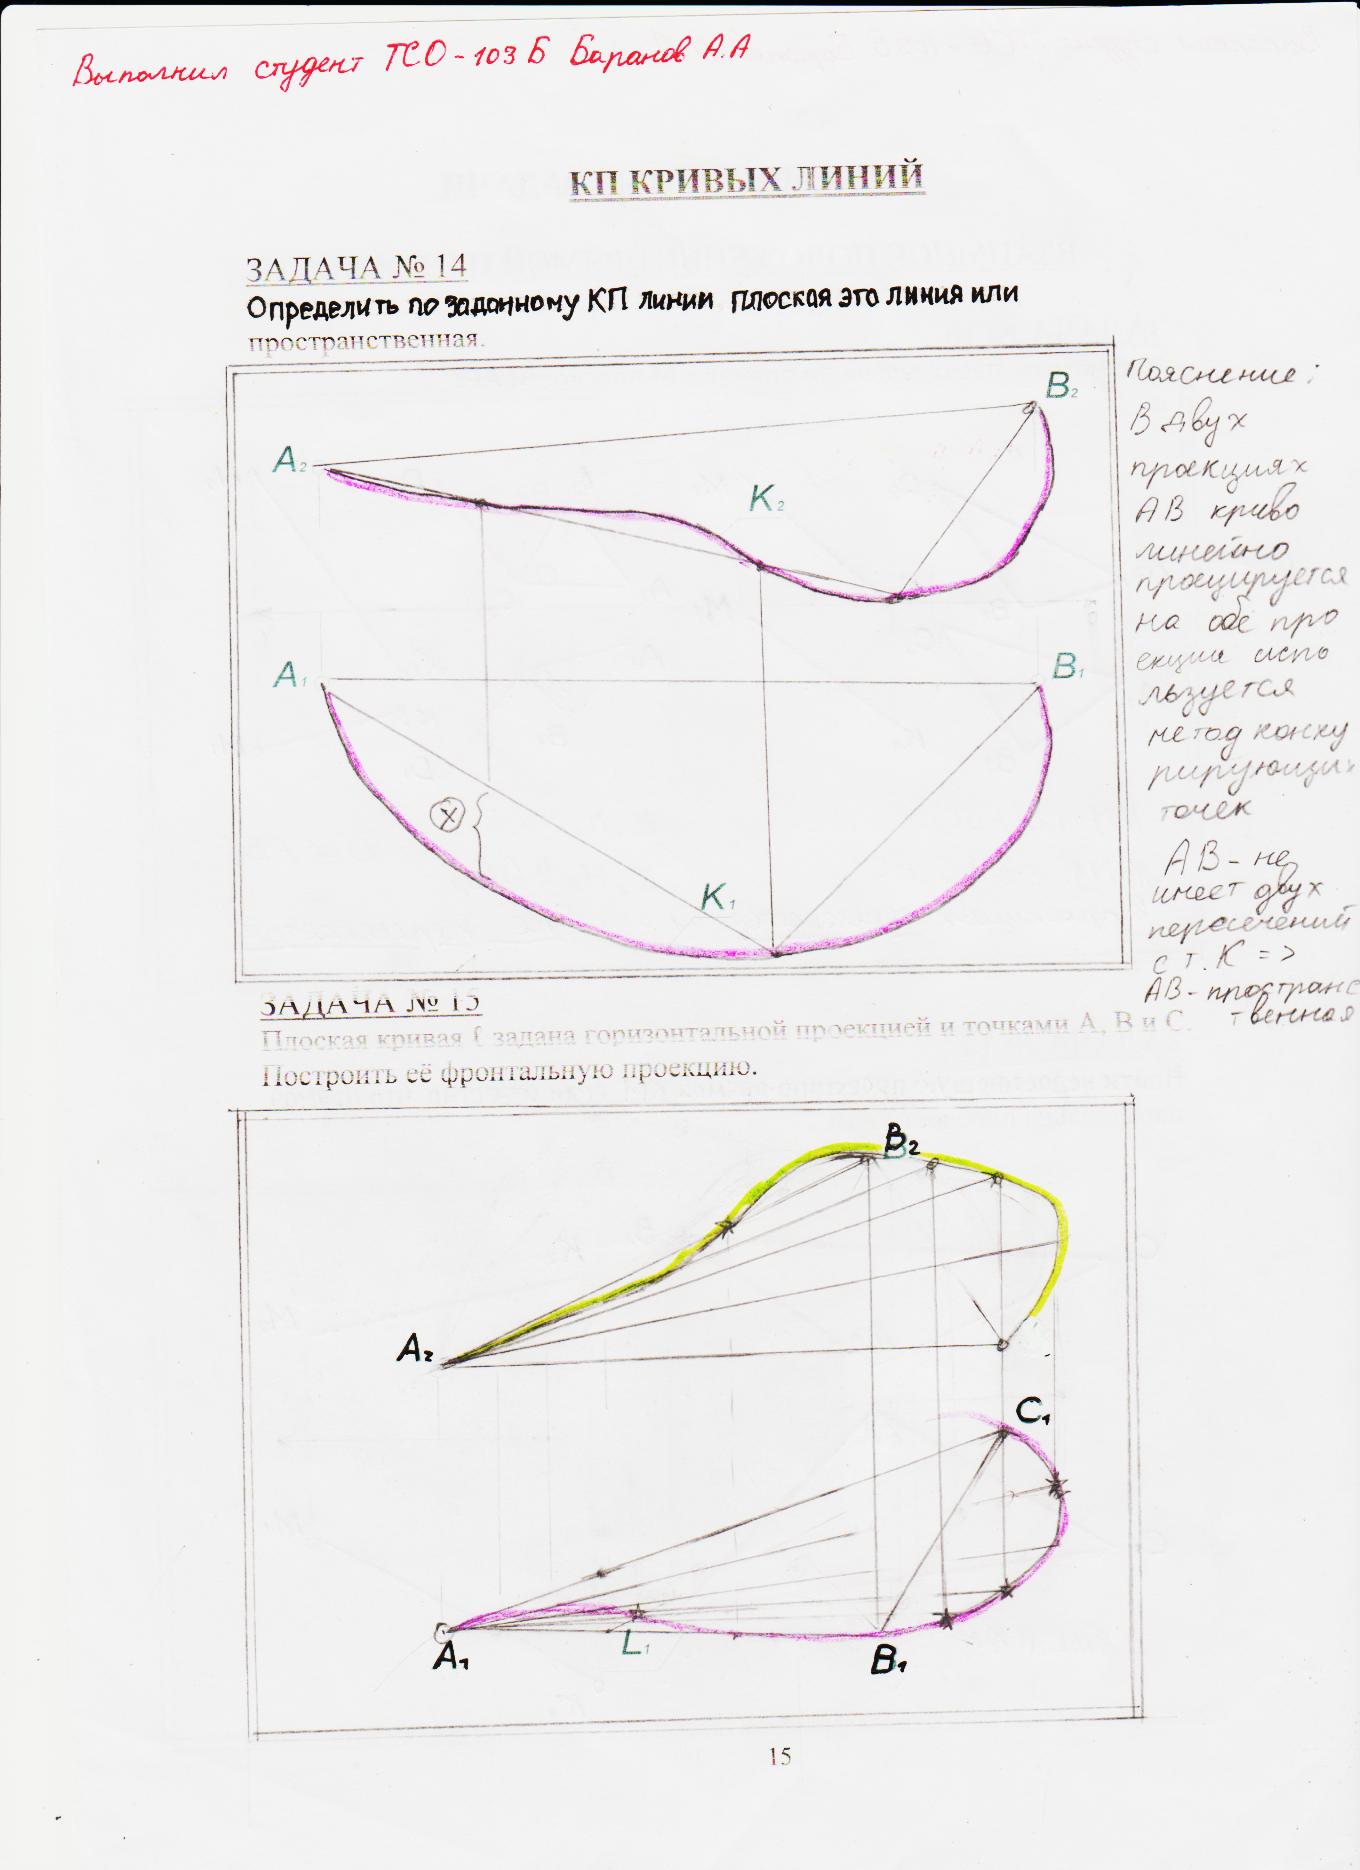 Выполнил студент ТСО-103 Б Баранов А.А
КП КРИВЫХ ЛИНИЙ
ЗАДАЧА № 14
Определить по заданному КП линии плоская эта линия или
пространственная.
B₂
A₂
K₂
A₁
B₁
X
K₁
Пояснение:
В двух
проекциях
АВ криво
линейно
проецируется
на обе про
екции испо
льзуется
метод конку
рирующих
точек
АВ - не
имеет двух
пересечений
с т. К =>
АВ - пространс
твенная
ЗАДАЧА № 15
Плоская кривая ℓ задана горизонтальной проекцией и точками А, В и С.
Построить её фронтальную проекцию.
B₂
A₂
C₁
L₁
A₁
B₁
15